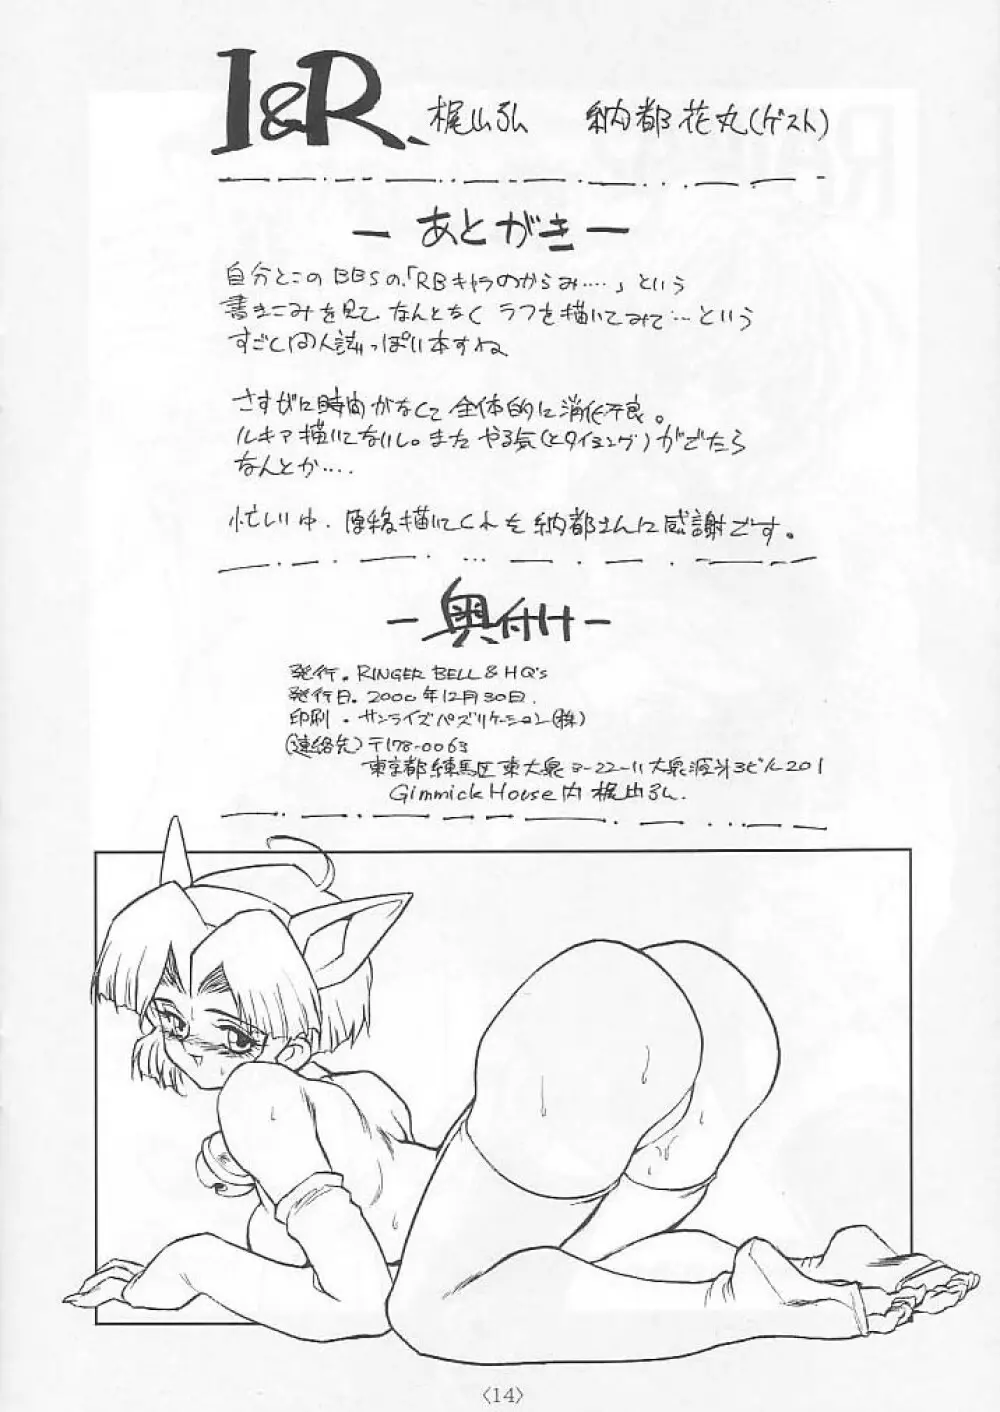 I&R、 梶山弘 納都花丸(ゲスト)
ー あとがき ー
自分とこのBBSの、「RBキャラのからみ‥‥」という
書きこみを見て、なんとなく ラフを描いてみて…という
すごく同人誌っぽい本すね
さすがに時間がなくて全体的に消化不良。
ルキア描いてないし。また やる気(とタイミング)がでたら
なんとか‥‥
忙しい中、原稿描いてくれた納都さんに感謝です。
ー奥付けー
発行。RINGER BELL & HQ's
発行日。2000年12月30日.
印刷・サンライズパブリケーション(株)
(連絡先)〒178-0063
東京都練馬区東大泉3-22-11大泉酒井3ビル201
Gimmick House内 梶山弘.
〈14〉